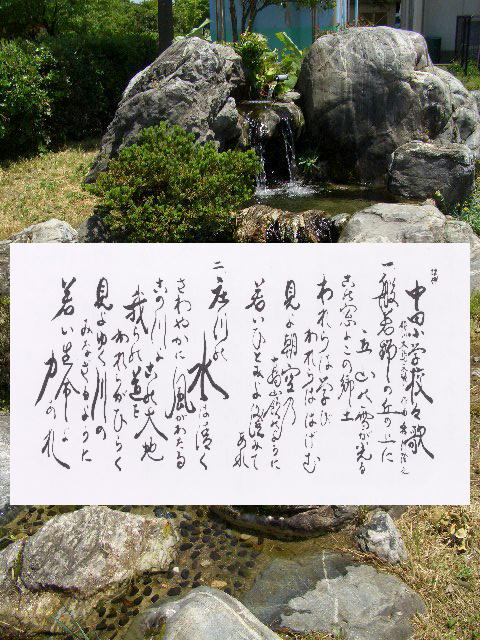 中田小学校々歌
一、般若野の丘の上に
立山の雪が光る
この窓よこの郷土
われらは学び
われらははげむ
見よ朝空の
ように
若いひとみよ澄みて
あれ
二、庄川の水は清く
さわやかに風がわたる
この川よこの大地
我らの道を
われらがひらく
見よゆく川の
みなぎるように
若い生命よ
力あれ